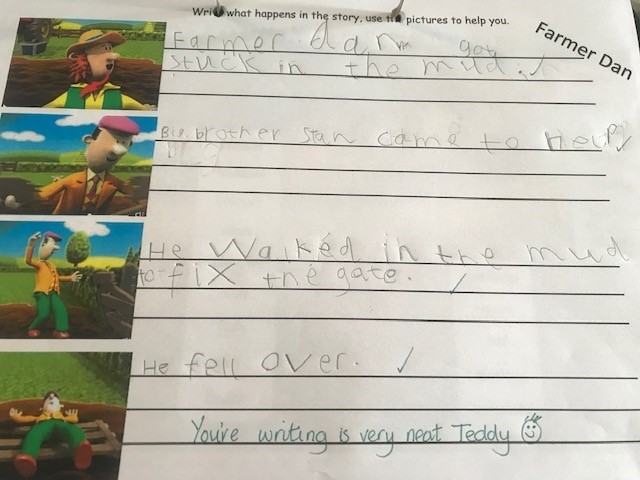 Write what happens in the story, use the pictures to help you.
Farmer Dan
Farmer dan got
stuck in the mud.
Big brother Stan came to help
He Walked in the mud
to fix the gate.
He fell over.
You're writing is very neat Teddy